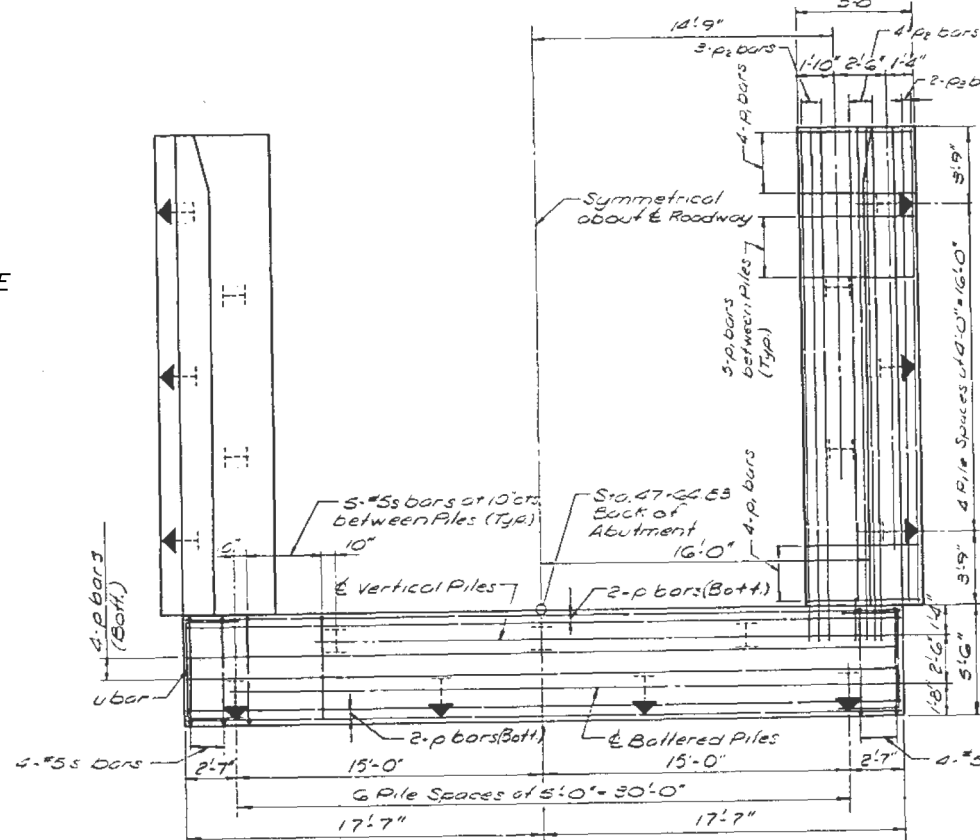 14'-9"
3-p₂ bars
4-p₂ bars
1'-10"
2'-6"
1'-4"
4-p, bars
3'-9"
Symmetrical
about ℄ Roadway
E
between Piles
(Typ.)
4 Pile Spaces at 4'-0" = 16'-0"
4-p, bars
5-#5s bars at 10"cts.
between Piles (Typ.)
10"
Back of
Abutment
16'-0"
3'-9"
4-p bars
(Bott.)
℄ Vertical Piles
2-p bars (Bott.)
1'-4"
2'-6"
1'-8"
5'-6"
u bar
2-p bars (Bott.)
℄ Battered Piles
4-#5s bars
2'-7"
15'-0"
15'-0"
2'-7"
6 Pile Spaces at 5'-0" = 30'-0"
17'-7"
17'-7"